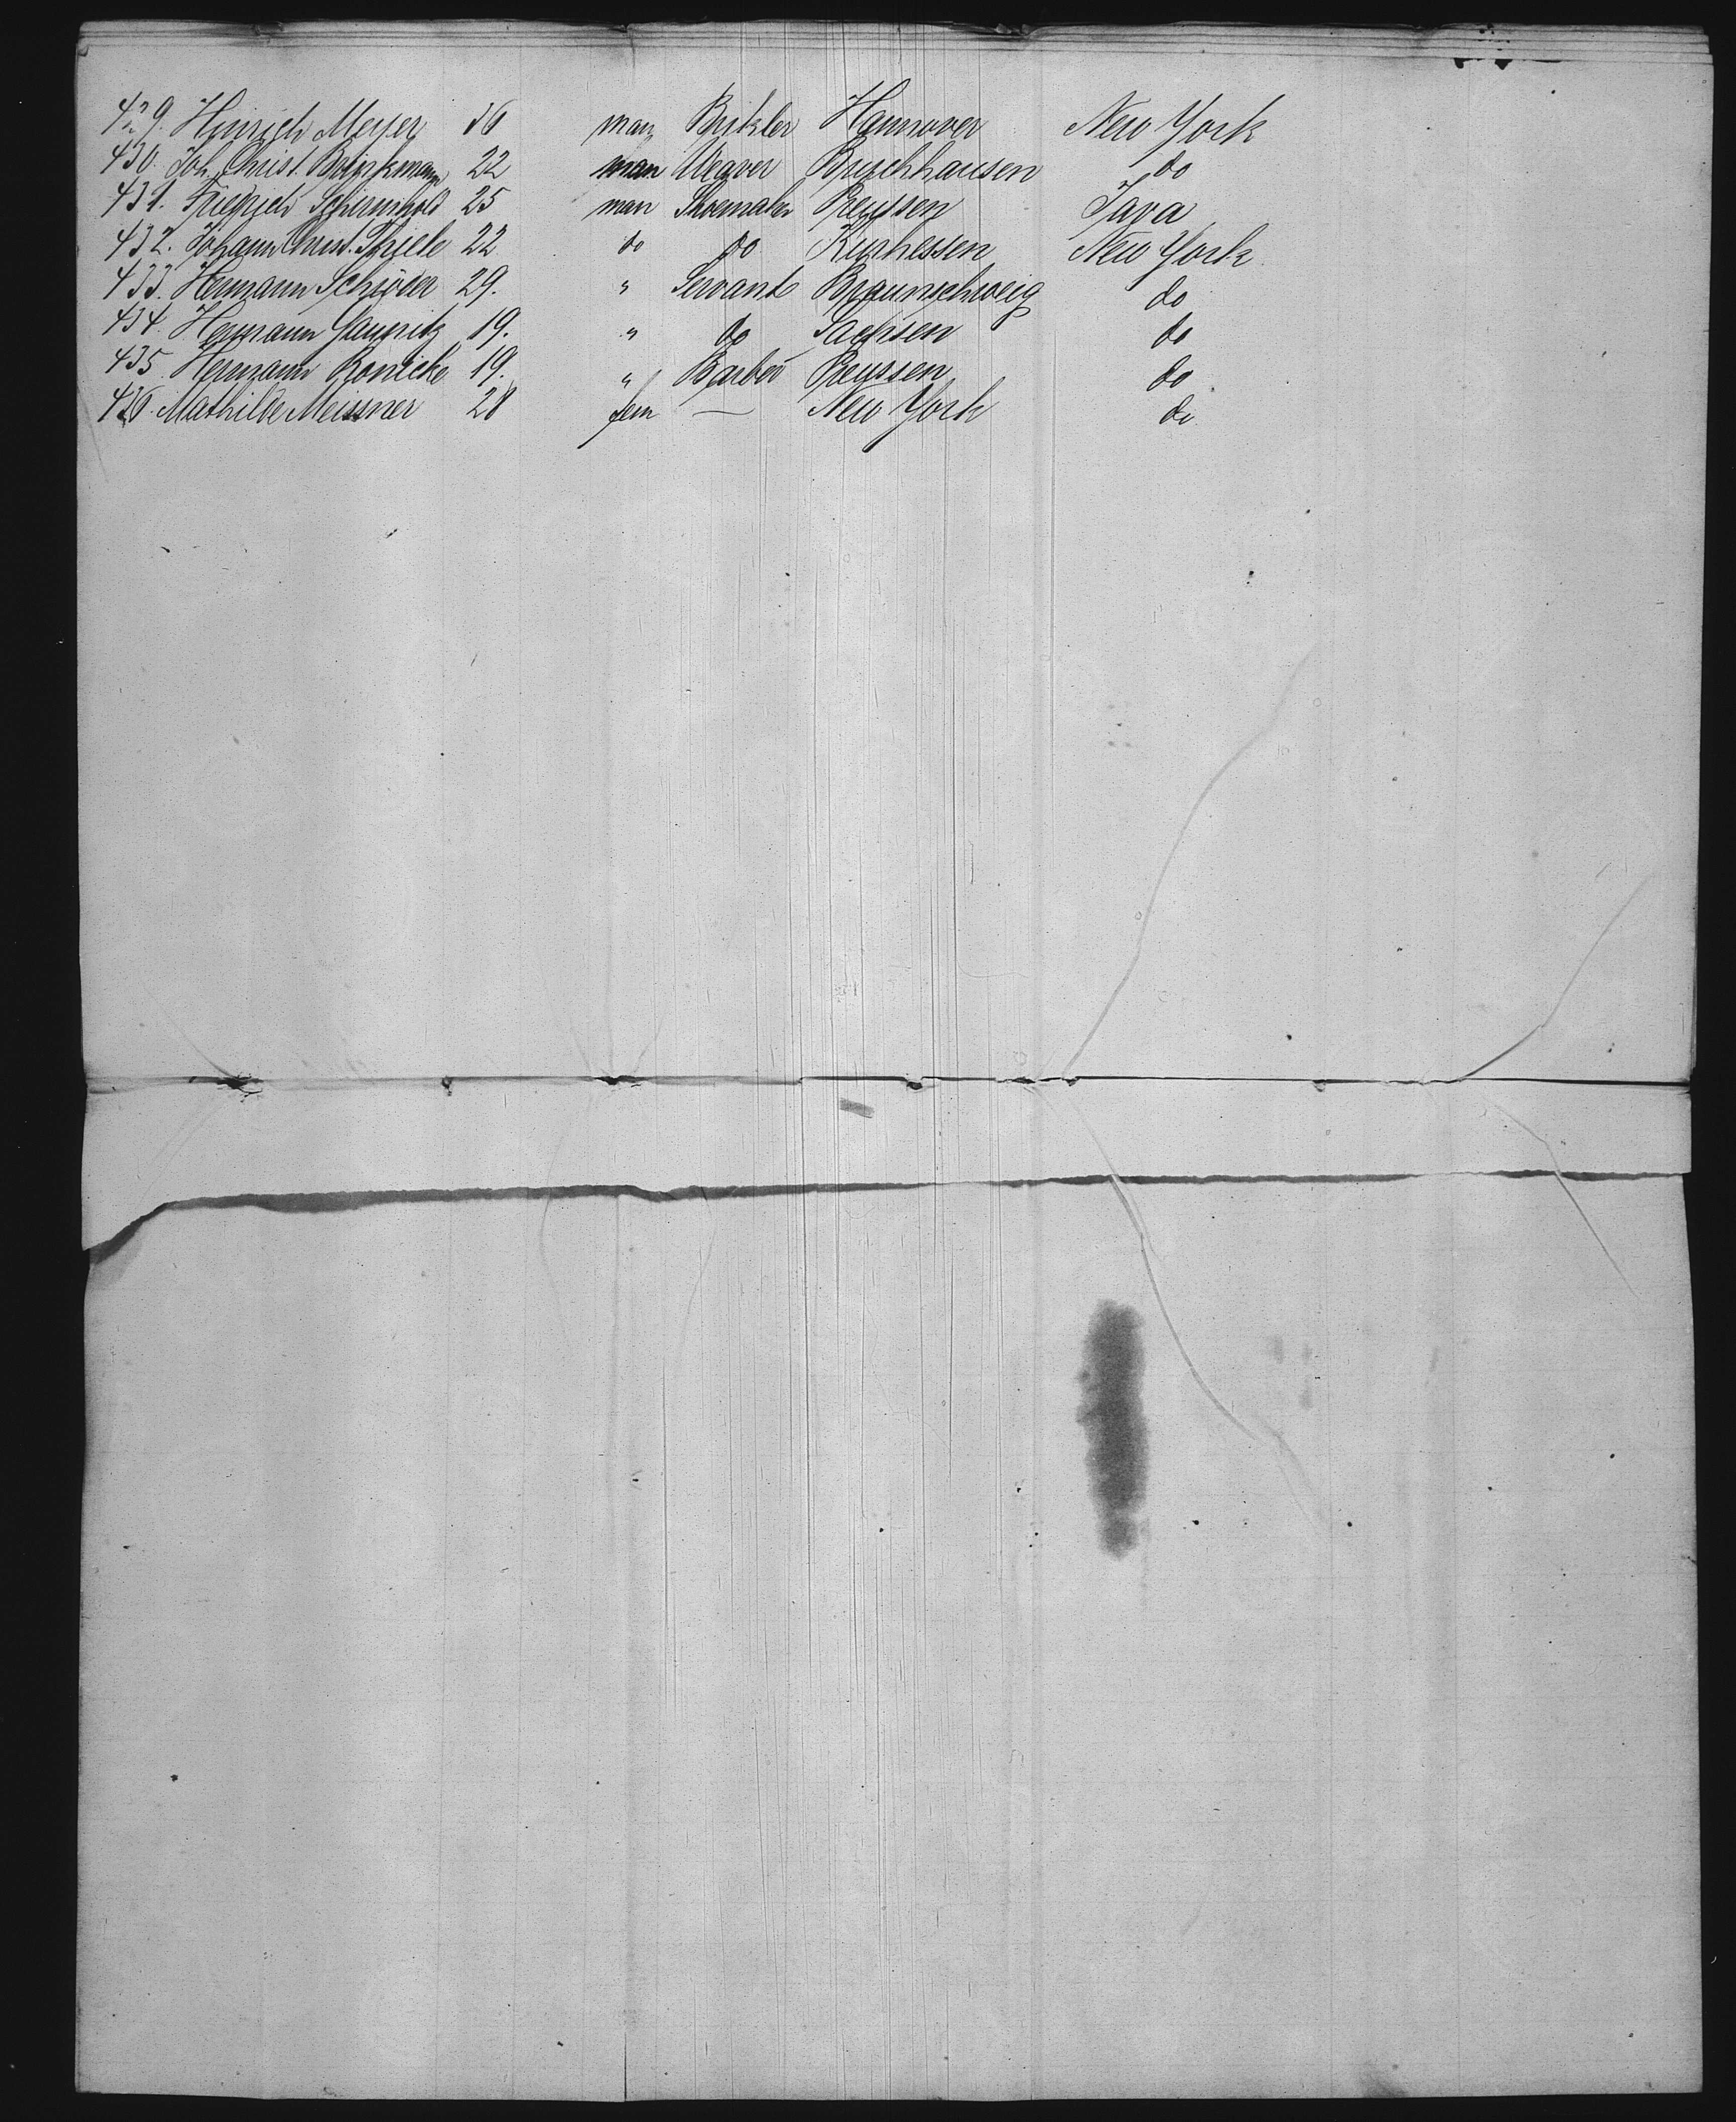 429. Hinrich Meyer 36 man Hannover New York
430. Joh. Christ. Brinkmann 22 man Weaver Bruchhausen do
431. Friedrich 25 man Shoemaker Preussen Java
432. Johann Christ. Thiele 22 do do Kurhessen New York
433. Hermann Schröder 29. " Servant Braunschweig do
434. Hermann 19. " do Sachsen do
435. Hermann Bonicke 19. " Barber Preussen do
436. Mathilde Meissner 28 fem — New York do